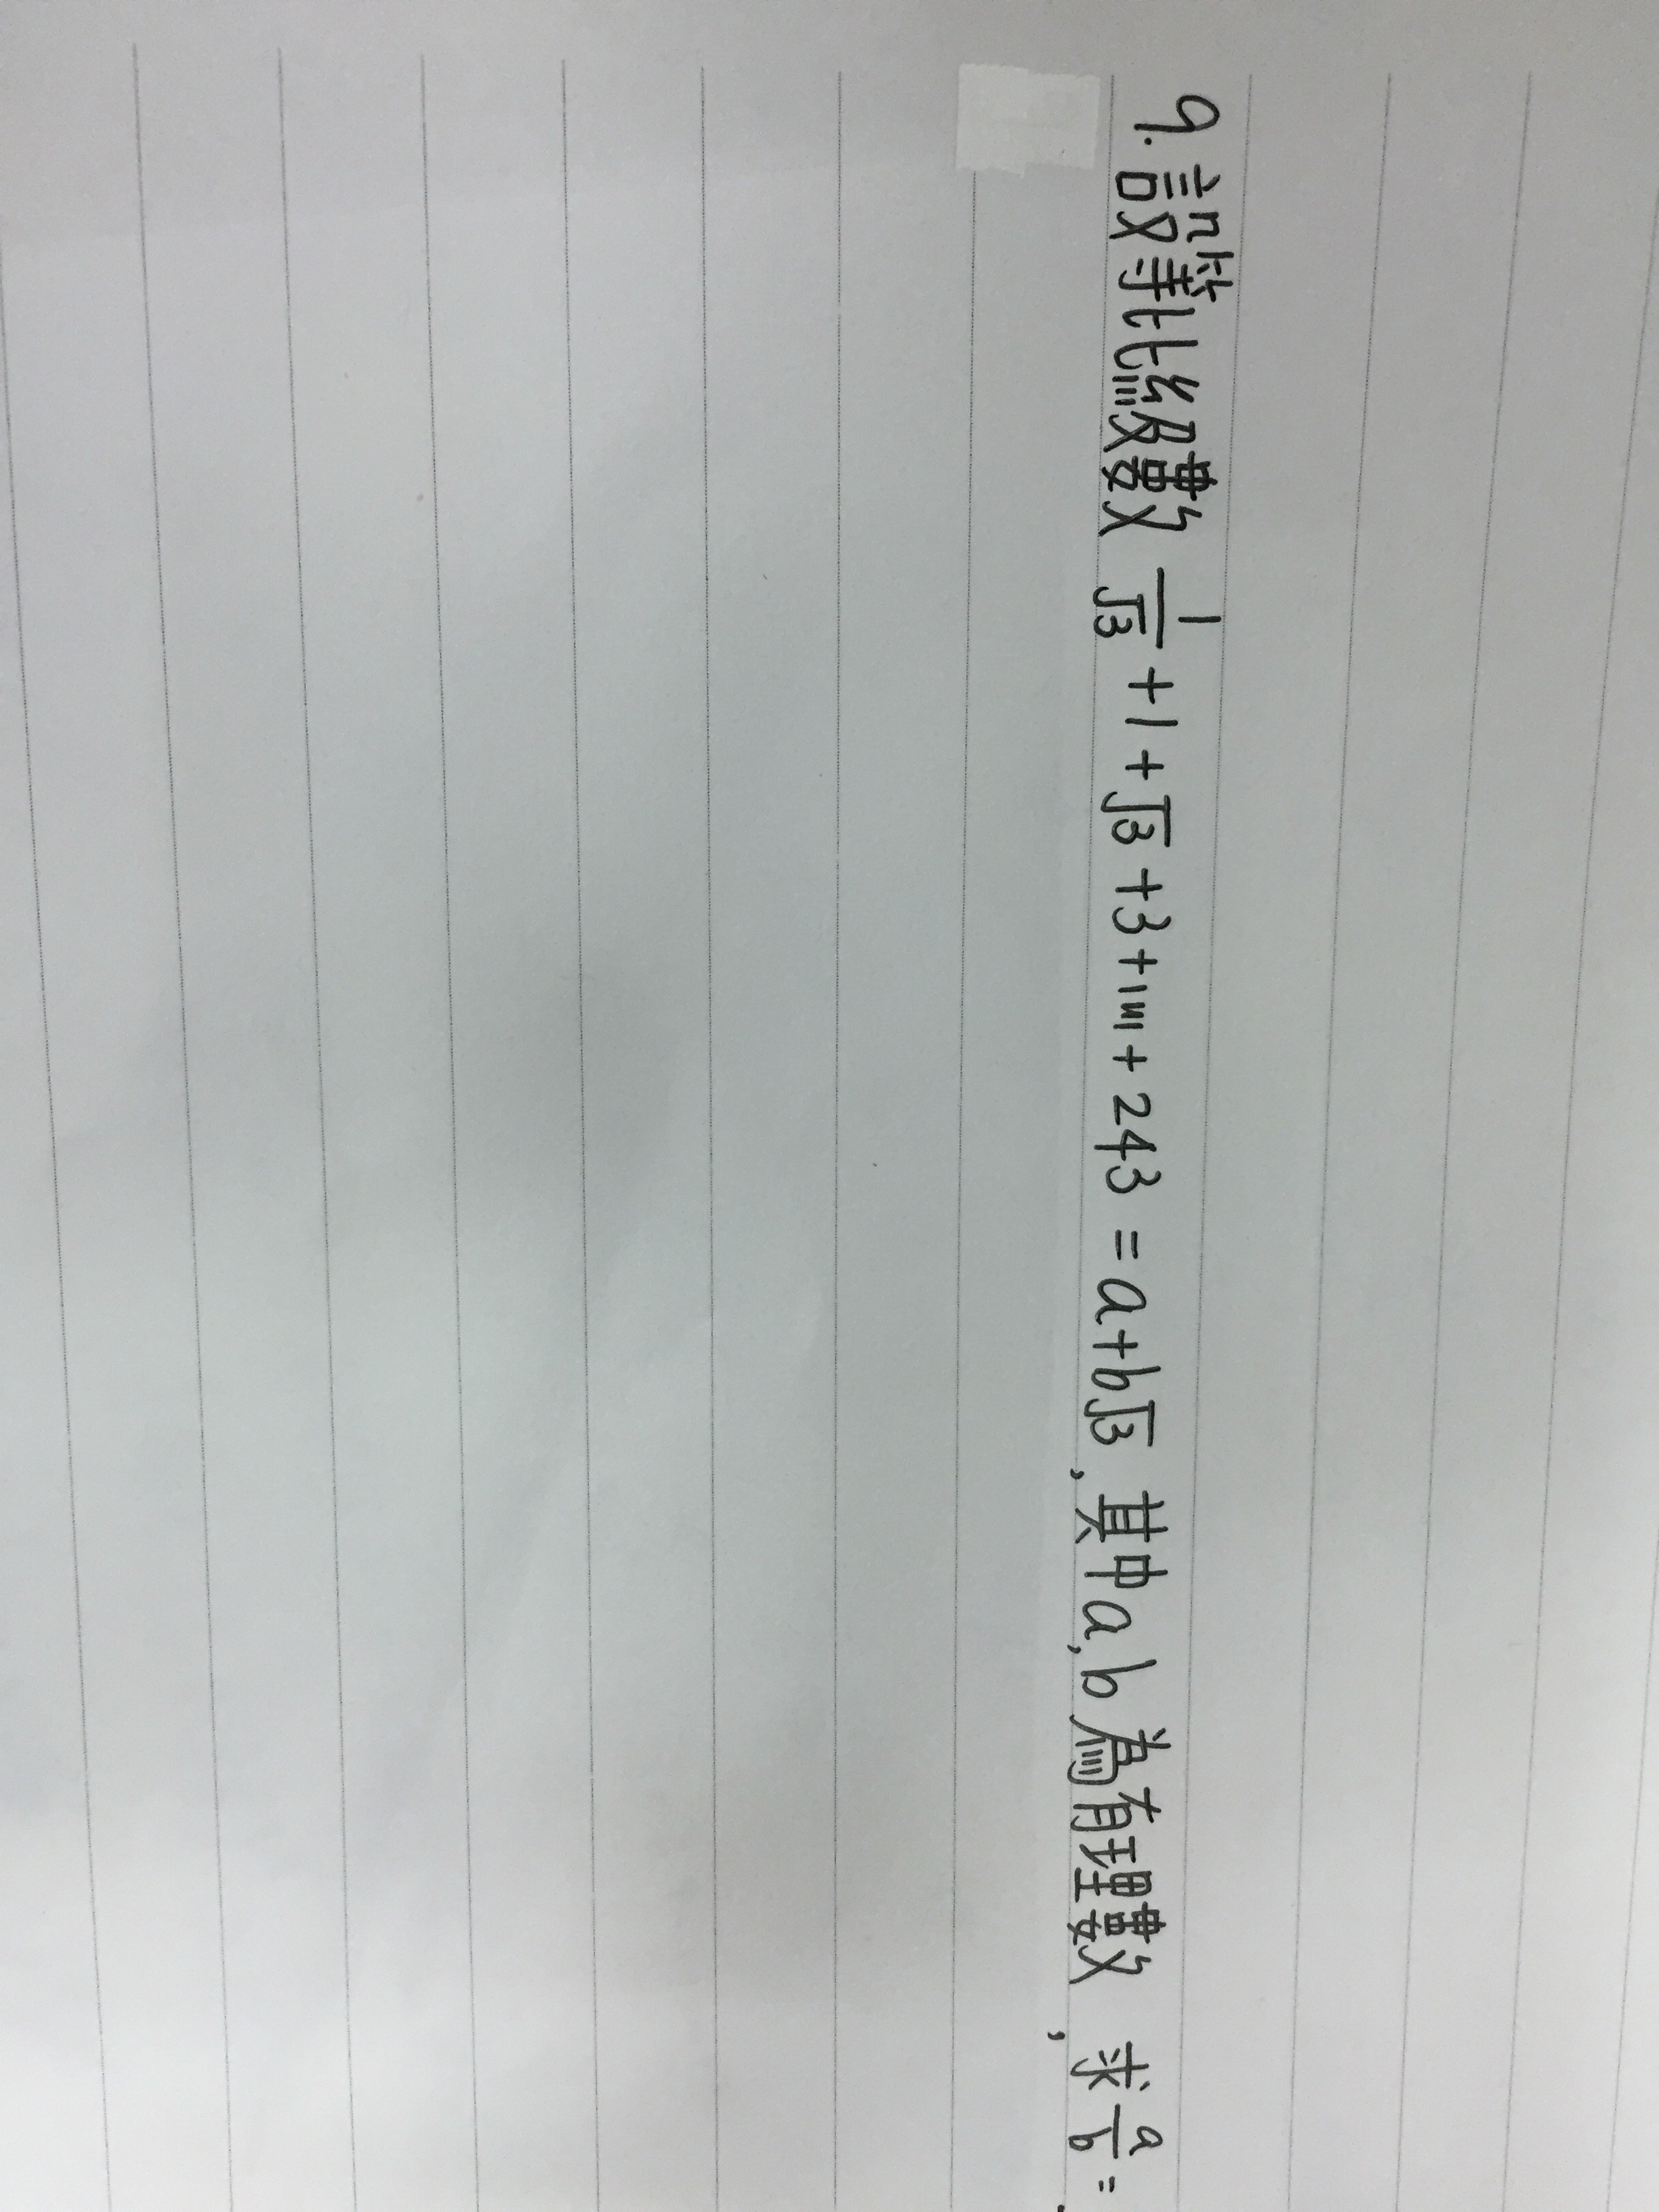 9. 設等比級數 1/√3 + 1 + √3 + 3 + ⋯ + 243 = a + b√3, 其中 a, b 為有理數, 求 a/b =